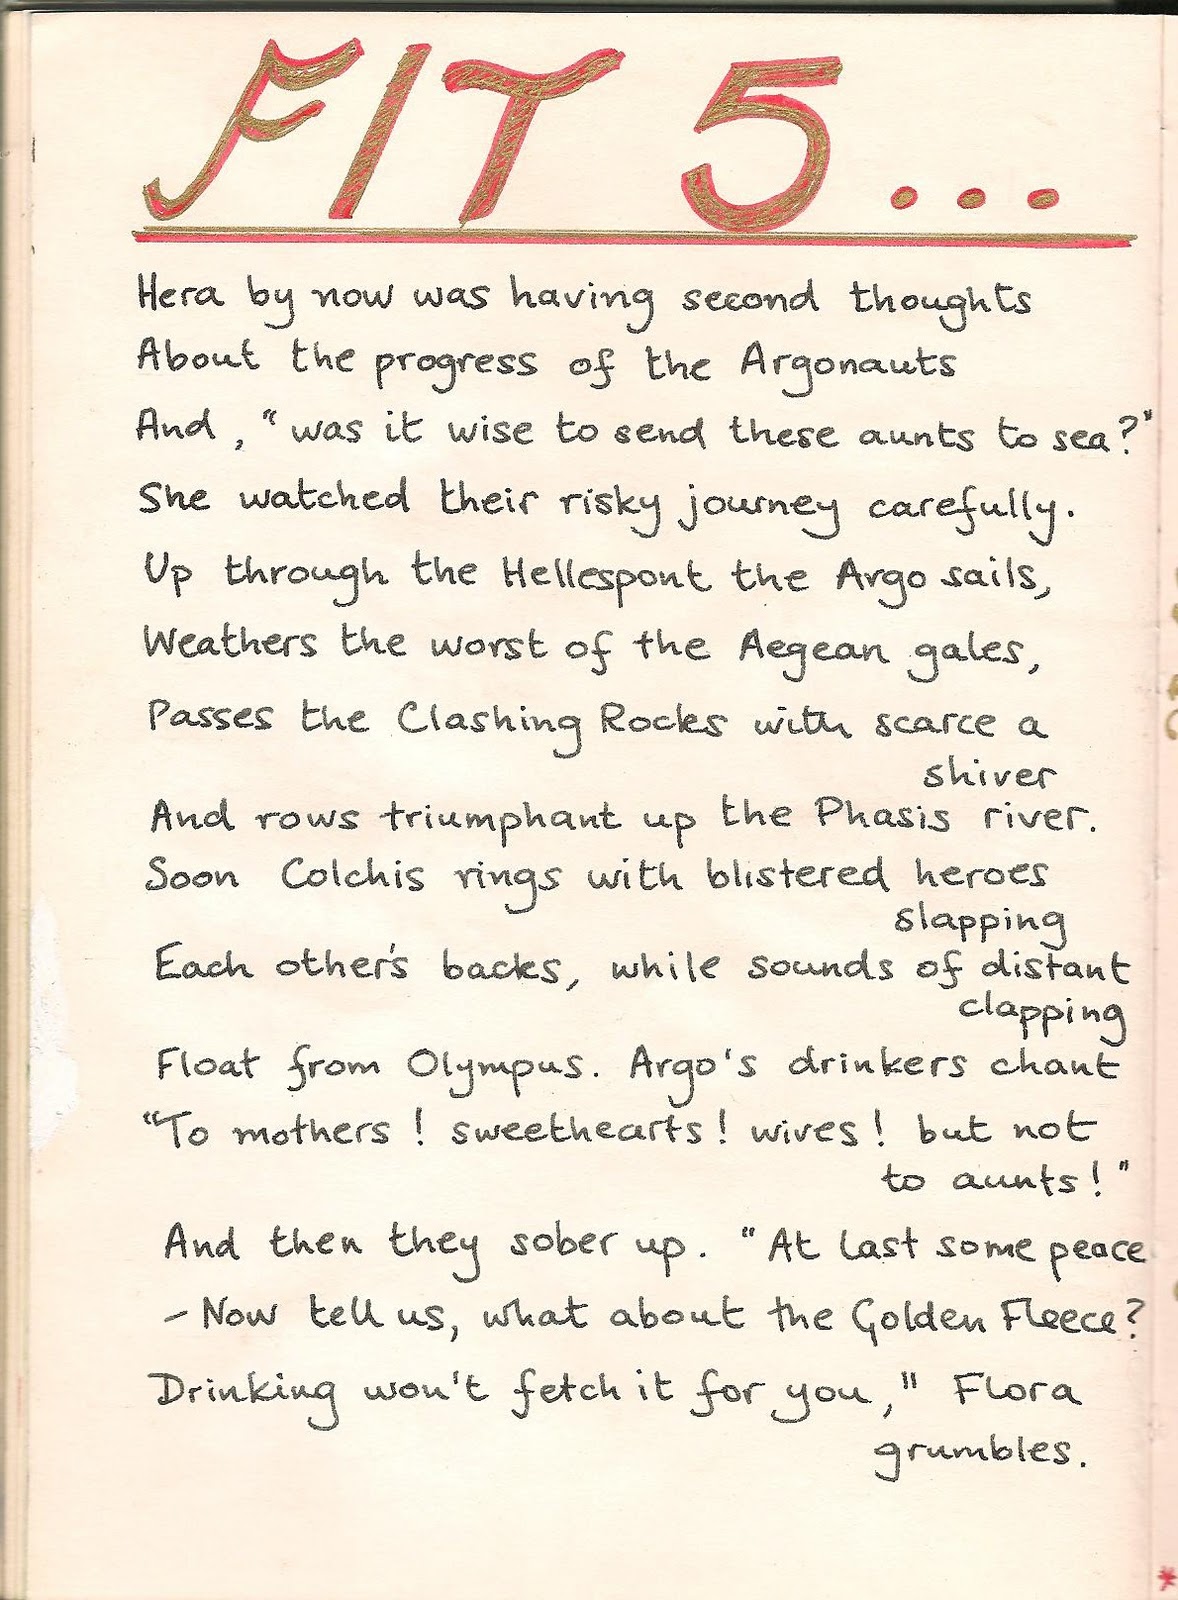 FIT 5...
Hera by now was having second thoughts
About the progress of the Argonauts
And, "was it wise to send these aunts to sea?"
She watched their risky journey carefully.
Up through the Hellespont the Argo sails,
Weathers the worst of the Aegean gales,
Passes the Clashing Rocks with scarce a
shiver
And rows triumphant up the Phasis river.
Soon Colchis rings with blistered heroes
slapping
Each other's backs, while sounds of distant
clapping
Float from Olympus. Argo's drinkers chant
"To mothers! sweethearts! wives! but not
to aunts!"
And then they sober up. "At last some peace
- Now tell us, what about the Golden Fleece?
Drinking won't fetch it for you," Flora
grumbles.
*